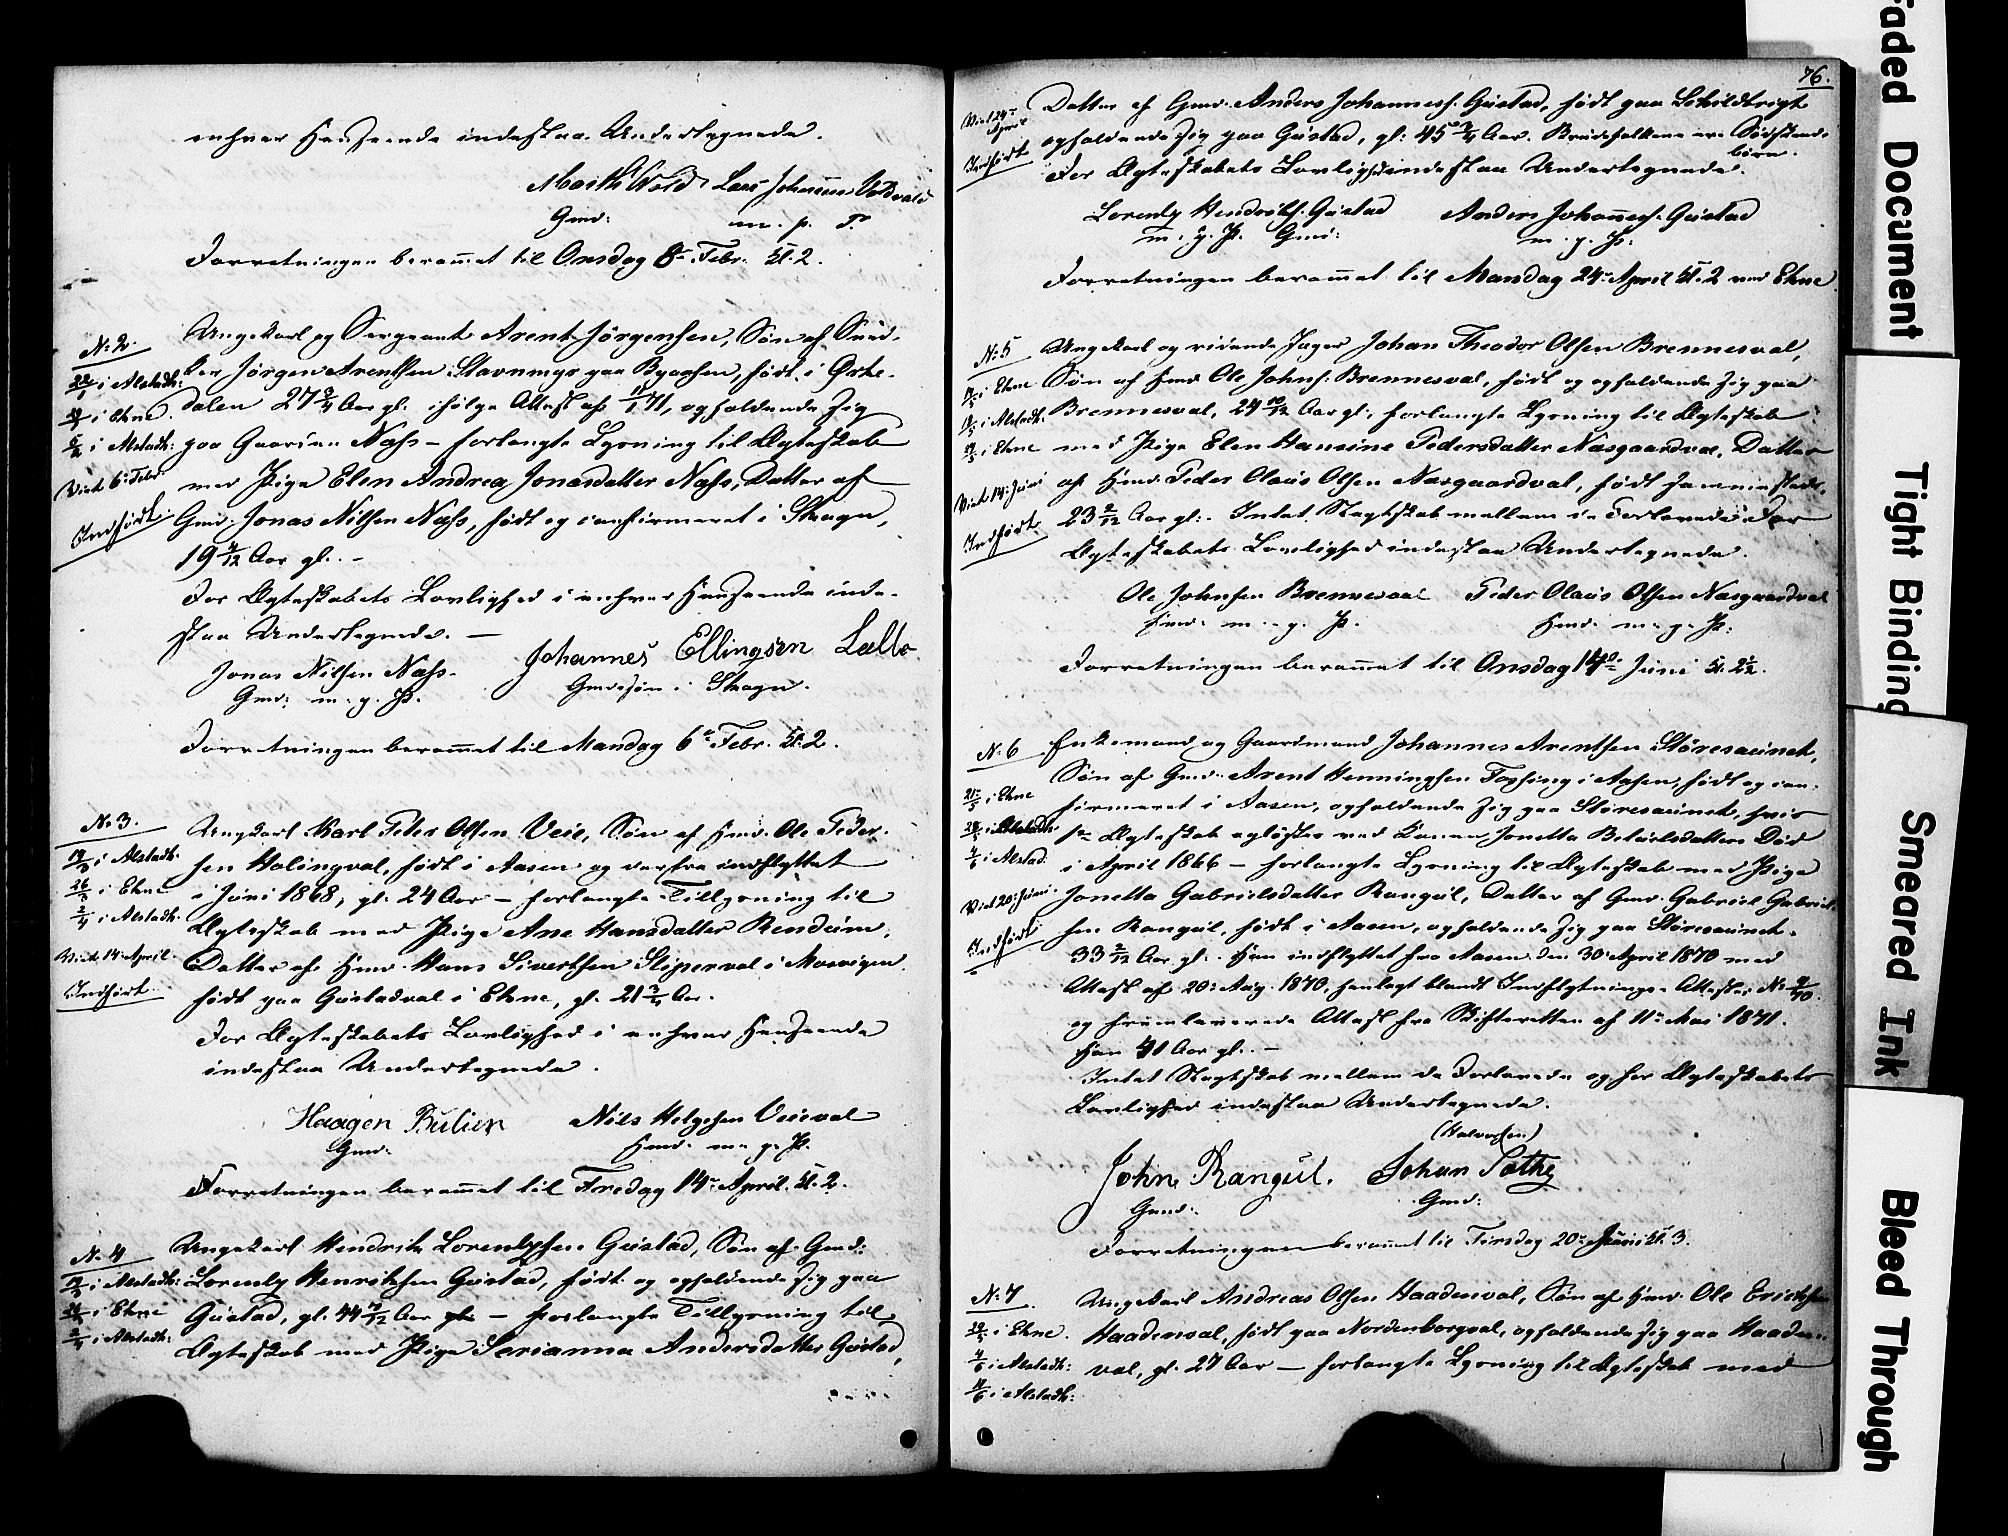 enhver Henseende indestaa Undertegnede.
Gmd: m. p. P.
Forretningen berammet til Onsdag 8de Febr. Kl. 2.
No 2.
i Alstadh:
i Ekne
i Alstadh:
Viet 6 Febr
Indført.
Ungekarl og Sergeant Arent Jörgensen, Søn af
Jörgen Arentsen Stavnmyr paa Byaasen, født i Orke-
dalen 27 3/4 Aar gl. ifølge Attest af 71, opholdende sig
paa Gaarden Næss – forlangte Lysning til Ægteskab
med Pige Elen Andrea Jonasdatter Næss, Datter af
Gmd. Jonas Nilsen Næss, født og confirmeret i Skogn,
19 Aar gl. –
For Ægteskabets Lovlighed i enhver Henseende inde-
staa Undertegnede. –
Jonas Nilsen Næss. Johannes Ellingsen
Gmd: m. g. P. Gmdssøn i Skogn.
Forretningen berammet til Mandag 6te Febr. Kl. 2.
No 3.
i Alstadh.
26/3 i Ekne
2/4 i Alstadh.
Viet 14 April.
Indført.
Ungkarl Karl Peter Olsen Veie, Søn af Hmd. Ole Peder-
sen Holingval, født i Aasen og derfra indflyttet
i Juni 1868, gl. 24 Aar – forlangte Tillysning til
Ægteskab med Pige Ane Hansdatter Rendum,
Datter af Hmd. Hans Sivertsen Sliperval i Mosvigen
født paa Gustadval i Ekne, gl. 21 Aar.
For Ægteskabets Lovlighed i enhver Henseende
indestaa Undertegnede.
Haagen Nils Helgesen Veieval
Gmd. Hmd. m. g. P.
Forretningen berammet til Fredag 14de April. Kl. 2.
No 4
i Alstadh:
i Ekne
i Alstadh:
Ungekarl Hendrik Lorentzsen Gustad, Søn af Gmd:
Lorentz Henriksen Gustad, født og opholdende sig paa
Gustad, gl. 44 Aar – forlangte Tillysning til
Ægteskab med Pige Serianna Andersdatter Gustad,
76.
Viet 24de April
Indført
Datter af Gmd. Anders Johanness. Gustad, født paa
opholdende sig paa Gustad, gl: 45 3/4 Aar. Brudefolkene ere Sødskende-
børn.
For Ægteskabets Lovlighed indestaa Undertegnede.
Lorentz Hendriks. Gustad Anders Johanness. Gustad
m. g. P. Gmd: m. g. P:
Forretningen berammet til Mandag 24de April Kl. 2 ved Ekne
No 5
i Ekne
i Alstadh.
i Ekne
Viet 14 Juni
Indført.
Ungekarl og ridende Jæger Johan Theodor Olsen Brennesval,
Søn af Hmd Ole Johns. Brennesval, født og opholdende sig paa
Brennesval, 24 10/12 Aar gl., forlangte Lysning til Ægteskab
med Pige Elen Hansine Pedersdatter Næsgaardval, Datter
af Hmd. Peder Olaus Olsen Næsgaardval, født sammesteds,
23 2/12 Aar gl. Intet Slægtskab mellem de Forlovede. For
Ægteskabets Lovlighed indestaa Undertegnede.
Ole Johnsen Brennesval Peder Olaus Olsen Næsgaardval
Hmd. m. g. P. Hmd. m. g. P:
Forretningen berammet til Onsdag 14de Juni Kl. 2 1/2.
No 6
21/5 i Ekne
28/5 i Alstadh:
4/6 i Alstad:
Viet 20 Juni.
Indført
Enkemand og Gaardmand Johannes Arentsen Störesaunet,
Søn af Gmd. Arent Henningsen Fossing i Aasen, født og con-
firmeret i Aasen, opholdende sig paa Störesaunet, hvis
1ste Ægteskab opløstes ved Konen Jonetta Død
i April 1866 – forlangte Lysning til Ægteskab med Pige
Jonetta Gabrielsdatter Rangul, Datter af Gmd. Gabriel Gabriel-
sen Rangul, født i Aasen, opholdende sig paa Störesaunet.
33 2/12 Aar gl. Hun indflyttet fra Aasen den 30 April 1870 med
Attest af 20 Aug. 1870, henlagt blandt Indflytnings-Attester No
og fremleverede Attest fra Skifteretten af 11te Mai 1871.
Han 41 Aar gl. –
Intet Slægtskab mellem de Forlovede og for Ægteskabets
Lovlighed indestaa Undertegnede.
(Halvorsen)
John Rangul. Johan
Gmd. Gmd:
Forretningen berammet til Tirsdag 20de Juni Kl. 3.
No 7
i Ekne.
4/6 i Alstadh:
11/6 i Alstadh:
Ungekarl Andreas Olsen Haadenval, Søn af Hmd. Ole Eriksen
Haadenval, født paa Nordenborgval, opholdende sig paa Haaden-
val, gl. 27 Aar – forlangte Lysning til Ægteskab med
Faded Document
Tight Binding
Smeared Ink
Bleed Through